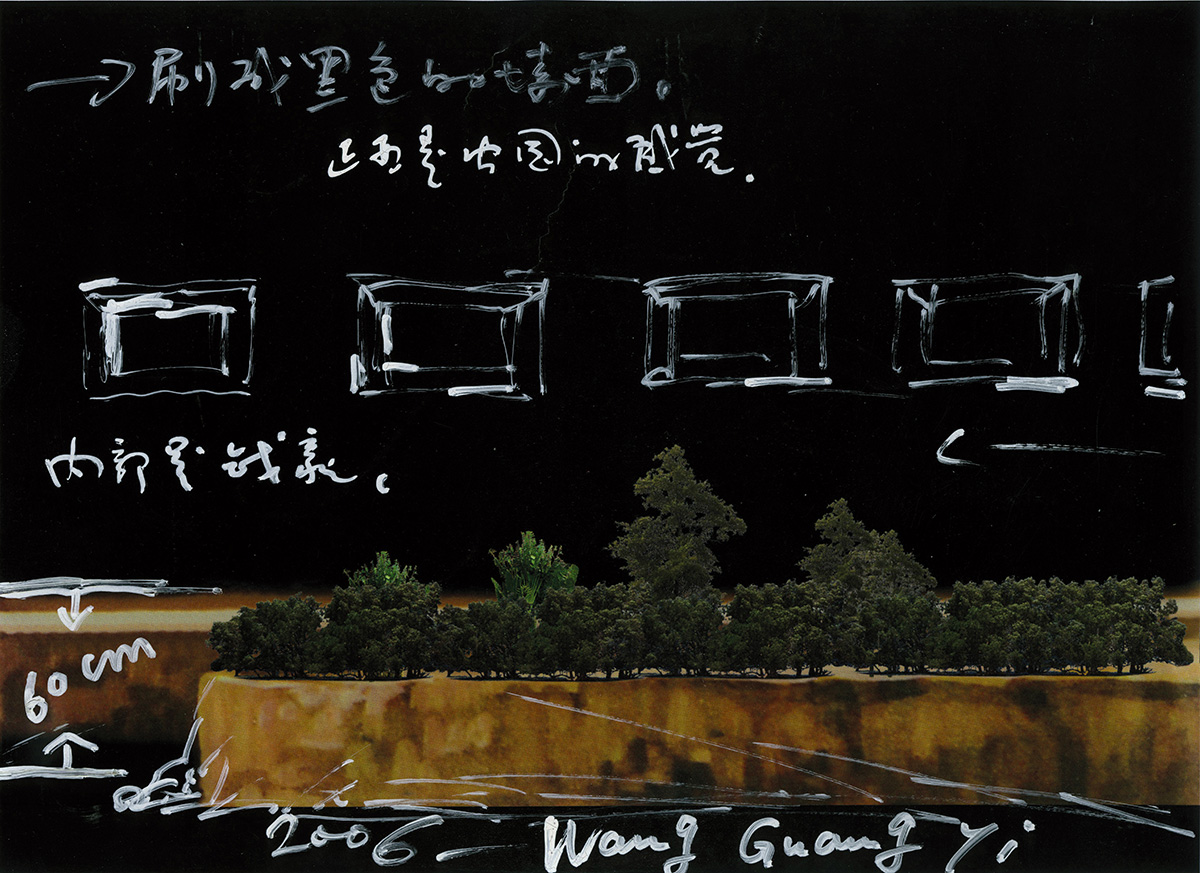 →刷成黑色的墙面。
是 的感觉.
内部是
60 cm
2006 Wang Guang Yi